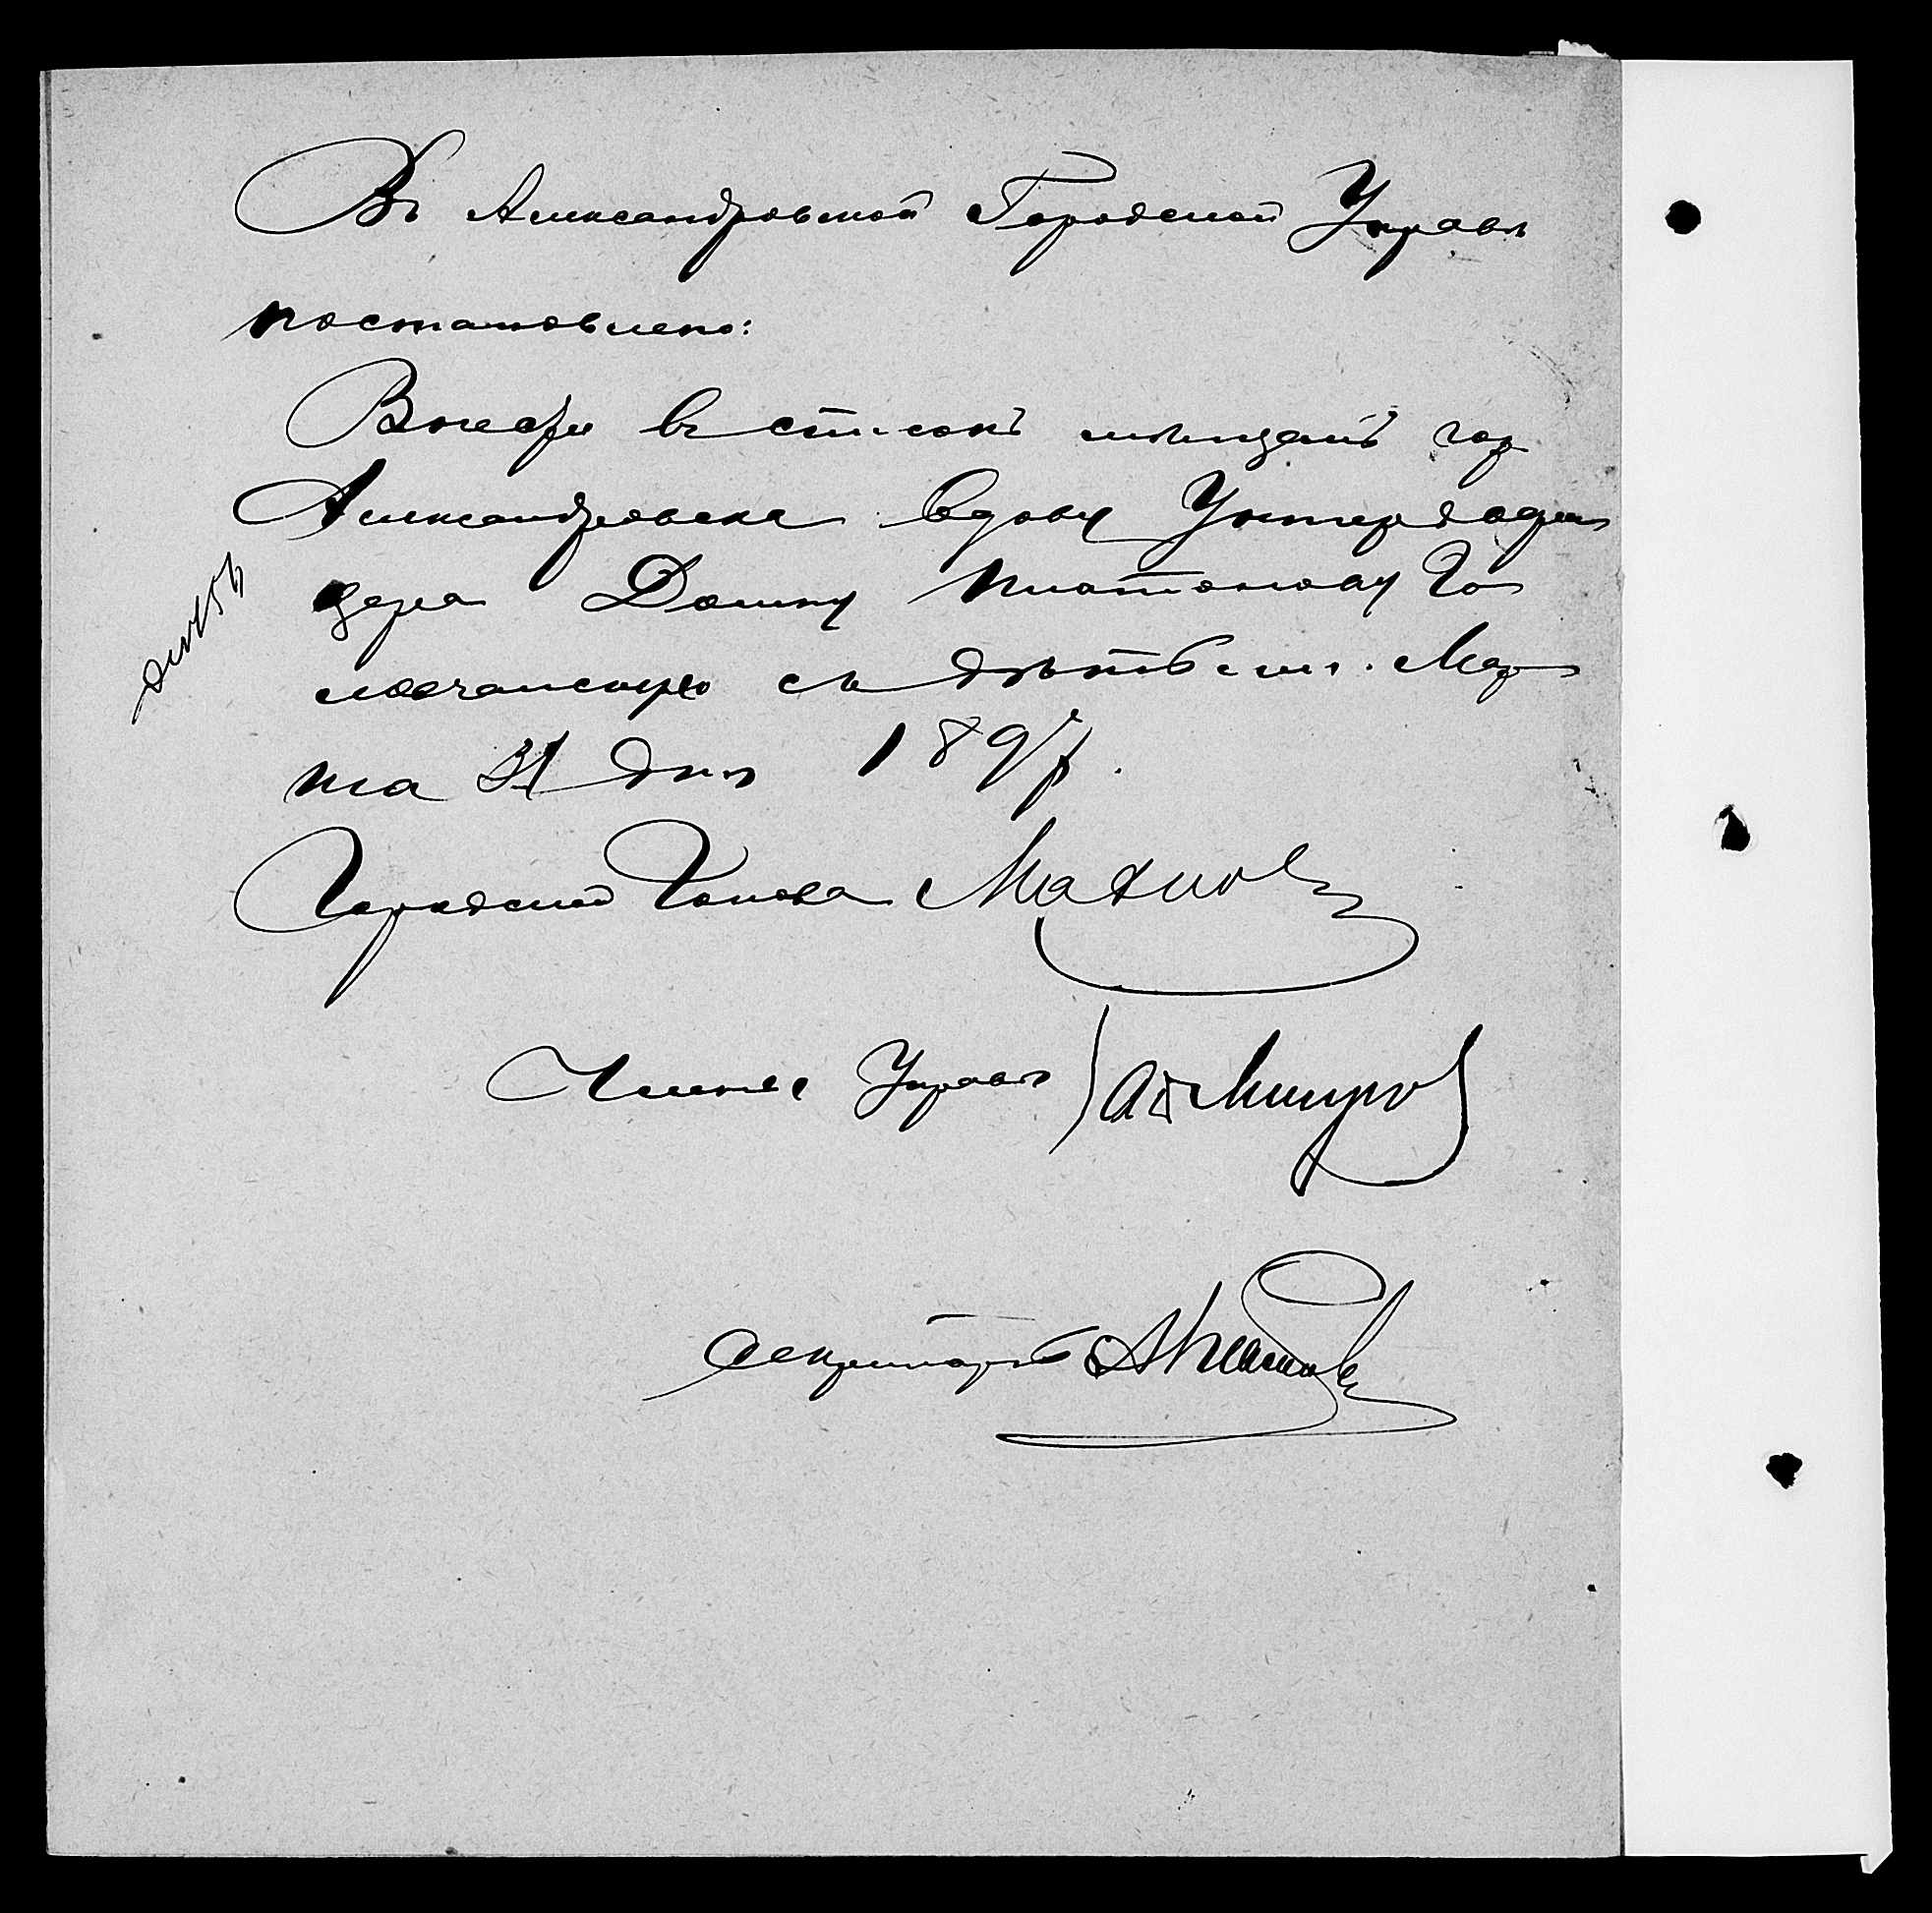 Въ Александровской Городской Управѣ
постановлено:
Внести въ списокъ мѣщанъ гор
Александровска вдову Унтеръ офи
цера Домну Платонову Го
ловчанскую съ дѣтьми. Мар
та 31 дня 1897.
Городской Голова Махнов
Члены Управы
Секретарь